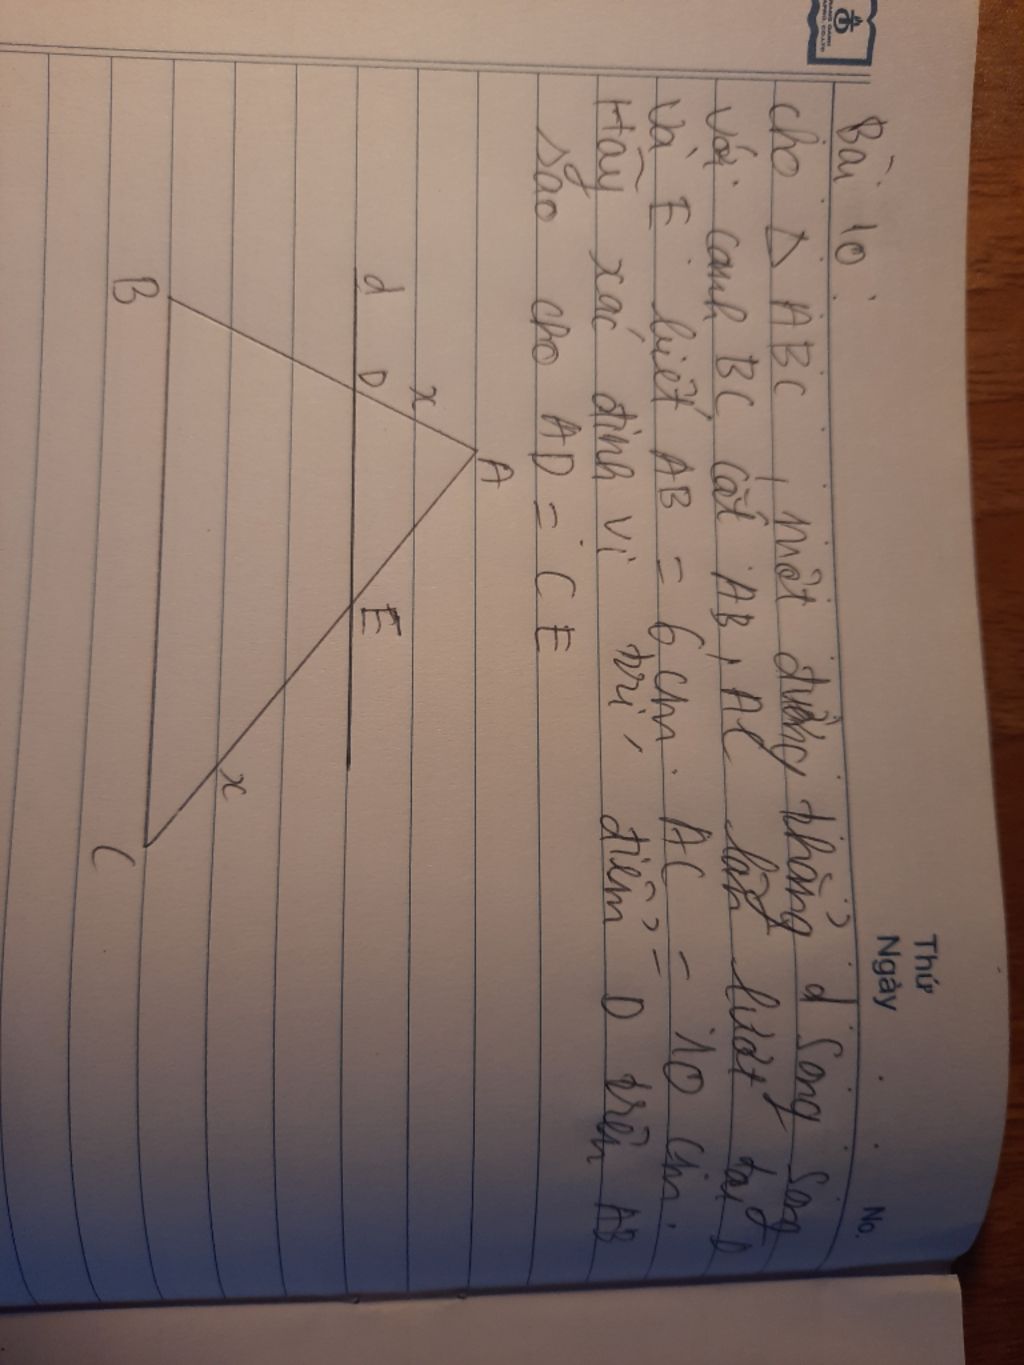 Thứ
Ngày
No.
Bài 10
cho Δ ABC, một đường thẳng d song song
với cạnh BC cắt AB, AC lần lượt tại D
và E biết AB = 6cm. AC = 10 cm.
Hãy xác định vị trí điểm D trên AB
sao cho AD = CE
A
x
d
D
E
x
B
C